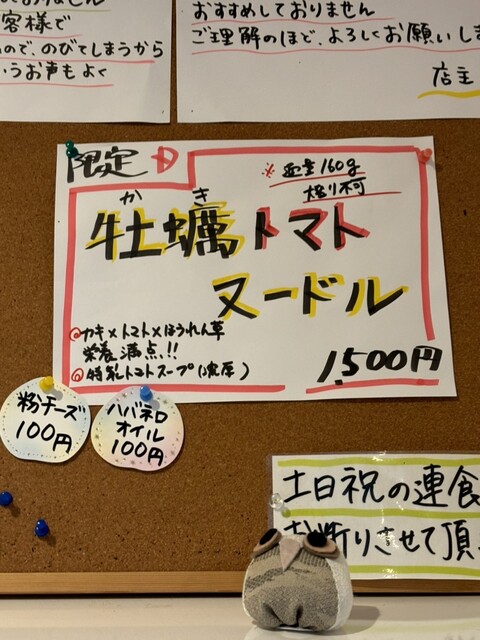 客様で
ので、のびてしまうから
いうお声もよく
おすすめしておりません
ご理解のほど、よろしくお願いしま
店主
限定
※麺量160g
大盛り不可
かき
牡蠣トマト
ヌードル
◎カキ×トマト×ほうれん草
栄養満点!!
◎特製トマトスープ(濃厚)
1,500円
粉チーズ
100円
ハバネロ
オイル
100円
土日祝の連食
お断りさせて頂